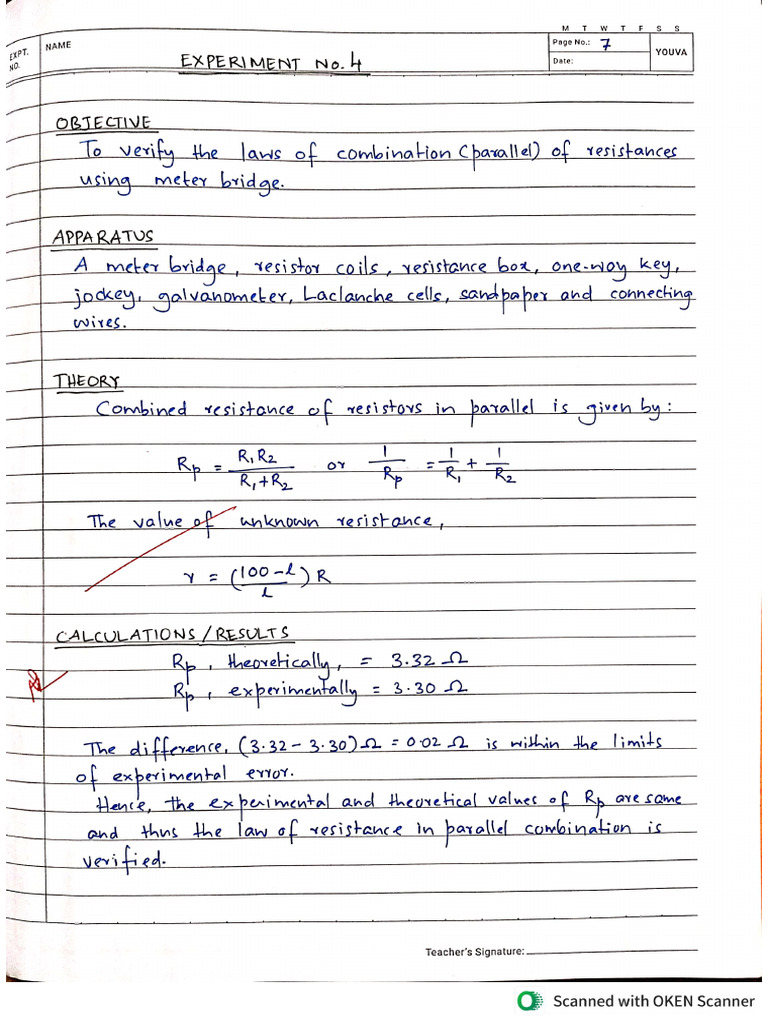 M T W T F S S
EXPT. NO.
NAME
Page No.: 7
YOUVA
Date:
EXPERIMENT No. 4
OBJECTIVE
To verify the laws of combination (parallel) of resistances
using meter bridge.
APPARATUS
A meter bridge, resistor coils, resistance box, one-way key,
jockey, galvanometer, Laclanche cells, sandpaper and connecting
wires.
THEORY
Combined resistance of resistors in parallel is given by:
Rp = R1R2 / R1+R2 or 1/Rp = 1/R1 + 1/R2
The value of unknown resistance,
r = (100-l / l) R
CALCULATIONS/RESULTS
Rp, theoretically, = 3.32 Ω
Rp, experimentally = 3.30 Ω
The difference, (3.32 - 3.30) Ω = 0.02 Ω is within the limits
of experimental error.
Hence, the experimental and theoretical values of Rp are same
and thus the law of resistance in parallel combination is
verified.
Teacher's Signature:
Scanned with OKEN Scanner